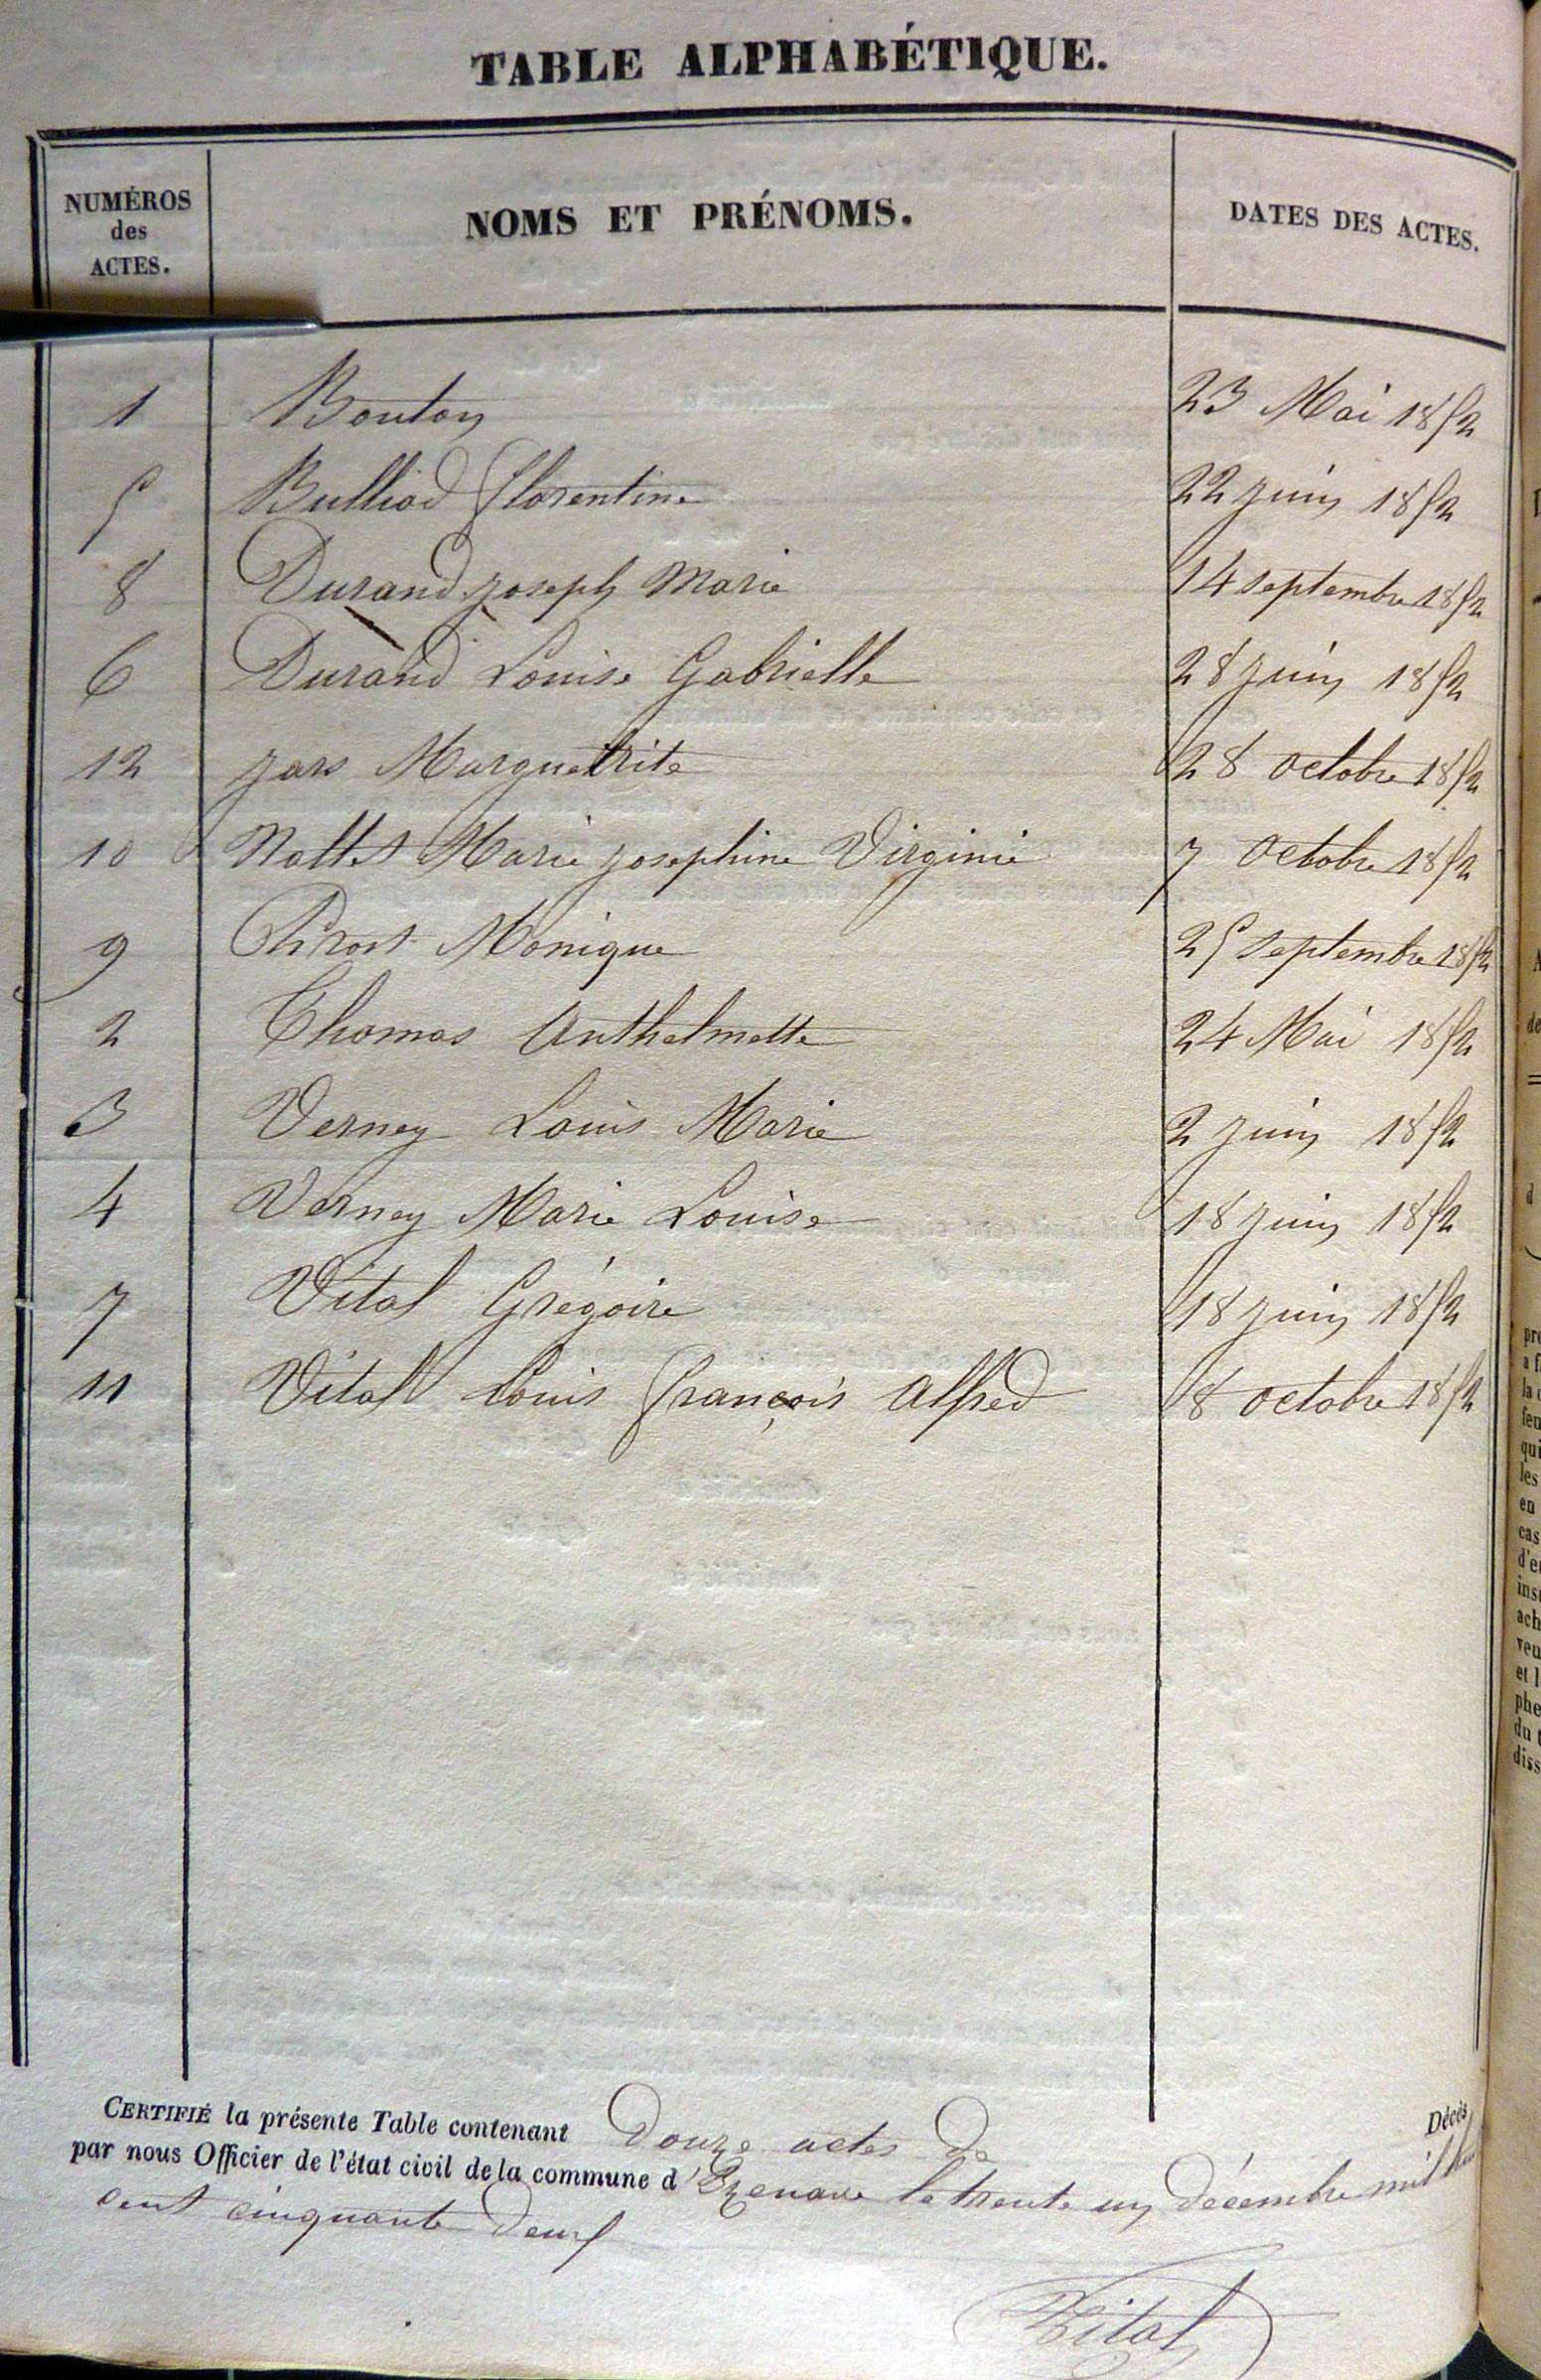 TABLE ALPHABÉTIQUE.
NUMÉROS des ACTES. NOMS ET PRÉNOMS. DATES DES ACTES.
1 Bouton 23 Mai 1852
5 Bulliod florentine 22 juin 1852
8 Durand joseph Marie 14 septembre 1852
6 Durand Louise Gabrielle 28 juin 1852
12 jars Marguetrite 28 octobre 1852
10 Nallet Marie josephine Virginie 7 octobre 1852
9 Monique 25 septembre 1852
2 Thomas Anthelmette 24 Mai 1852
3 Verney Louis Marie 2 juin 1852
4 Verney Marie Louise 18 juin 1852
7 Vital Grégoire 18 juin 1852
11 Vital Louis françois alfred 8 octobre 1852
CERTIFIÉ la présente Table contenant Douze actes de Décès
par nous Officier de l'état civil de la commune d' le trente un décembre mil huit
cent cinquante deux
Vital